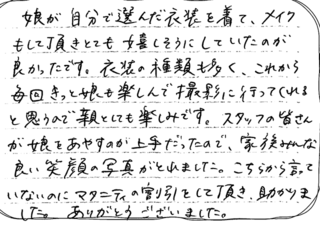 娘が自分で選んだ衣装を着て、メイク
もして頂きとても嬉しそうにしていたのが
良かったです。衣装の種類も多く、これから
毎回きっと娘も楽しんで撮影に行ってくれる
と思うので親としても楽しみです。スタッフの皆さん
が娘をあやすのが上手だったので、家族みんな
良い笑顔の写真がとれました。こちらから言って
いないのにマタニティの割引をして頂き、助かりま
した。ありがとうございました。